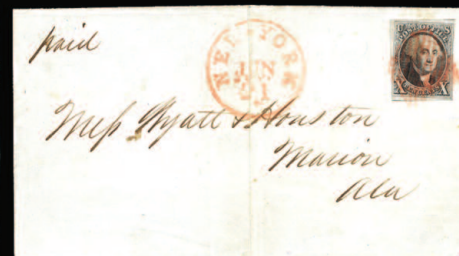 paid
NEW-YORK
JUN
21
POST OFFICE
X X
Mess Wyatt & Houston
Marion
Ala